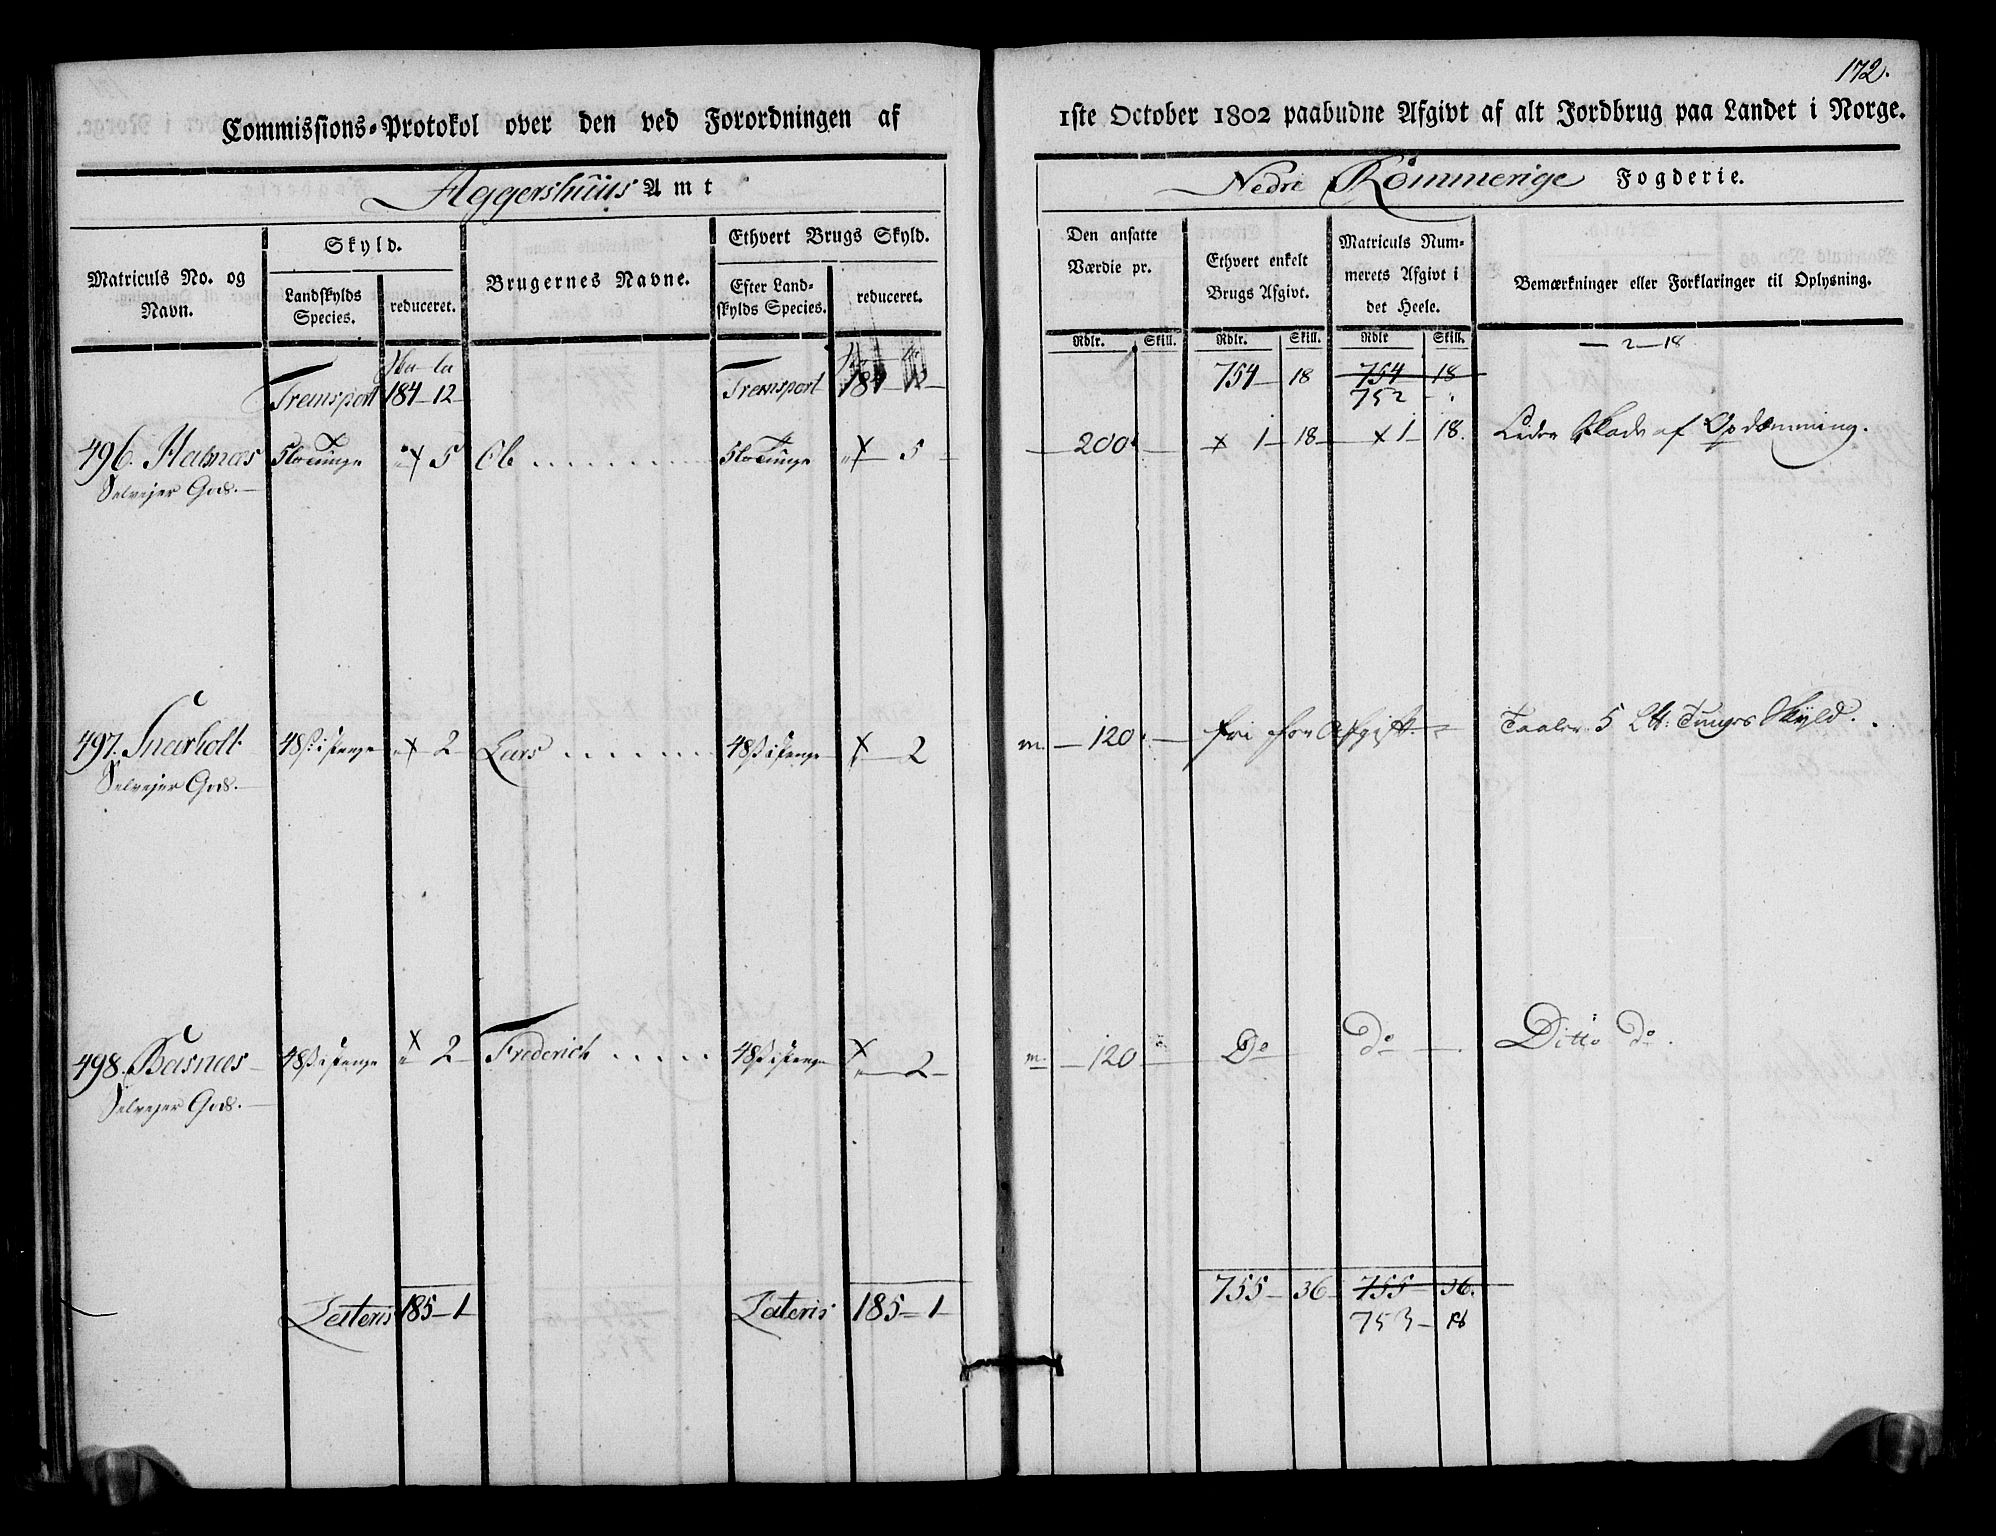 172.
Commissions-Protokol over den ved Forordningen af
1ste October 1802 paabudne Afgivt af alt Jordbrug paa Landet i Norge.
Aggershuus Amt
Nedre Rommerige Fogderie.
Matriculs No. og Navn.
Skyld.
Landskylds Species.
reduceret.
Brugernes Navne.
Ethvert Brugs Skyld.
Efter Landskylds Species.
reduceret.
Den ansatte Værdie pr.
Ethvert enkelt Brugs Afgivt.
Matriculs Nummerets Afgivt i det Heele.
Bemærkninger eller Forklaringer til Oplysning.
Rdlr. Skill. Rdlr. Skill. Rdlr Skill.
— 2 — 18
Transport 184 — 12 Transport 184 754 — 18 754 18
752 —
496. Halnæs 5 Tunge × 5 Ole . . . . 5 Tunge × 5 — 200 — × 1 — 18 — × 1 — 18. Lider Skade af Opdæmning.
Selvejer Gods. —
497. Snarholt 48 ß i penge × 2 Lars . . . . 48 ß i penge × 2 m — 120 — fri for Afgift. Taaler 5 Tunges Skyld.
Selvejer Gods. —
498. Basnæs 48 ß i penge × 2 Frederich . . . . 48 ß i penge × 2 m — 120 — Do do Ditto do.
Selvejer Gods. —
Lateris 185 — 1 Lateris 185 — 1 755 — 36 755 — 36.
753 — 18